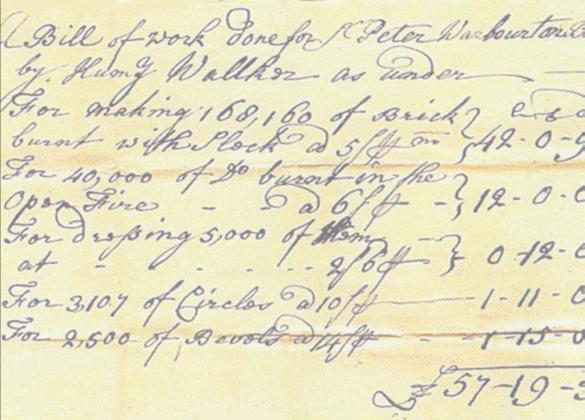 A Bill of work done for Sr Peter Warbourton
by Humy Wallker as under
For making 168,160 of Brick } £ s d
burnt with Sleck a 5/ pr m } 42-0-9
For 40,000 of Do burnt in the
Open Fire - - a 6/ pr - } 12-0-0
For dressing 5,000 of them
at - - - - - 2/6 pr } 0-12-
For 3,107 of Circles a 10/ pr 1-11-0
For 2,500 of Bevols a 14/ pr - - 1-15-0
£57-19-